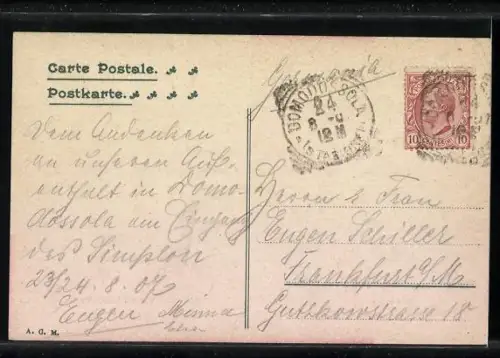 Carte Postale.
Postkarte.
Germania
DOMODOSSOLA
24
8
12 M
10
10
Dem Andenken
an unseren Auf-
enthalt in Domo-
dossola am Eingang
des Simplon
23/24. 8. 07
Eugen Minna
Herrn u Frau
Eugen Schiller
Frankfurt a/M
Gutzkowstrasse 18.
A. G. M.